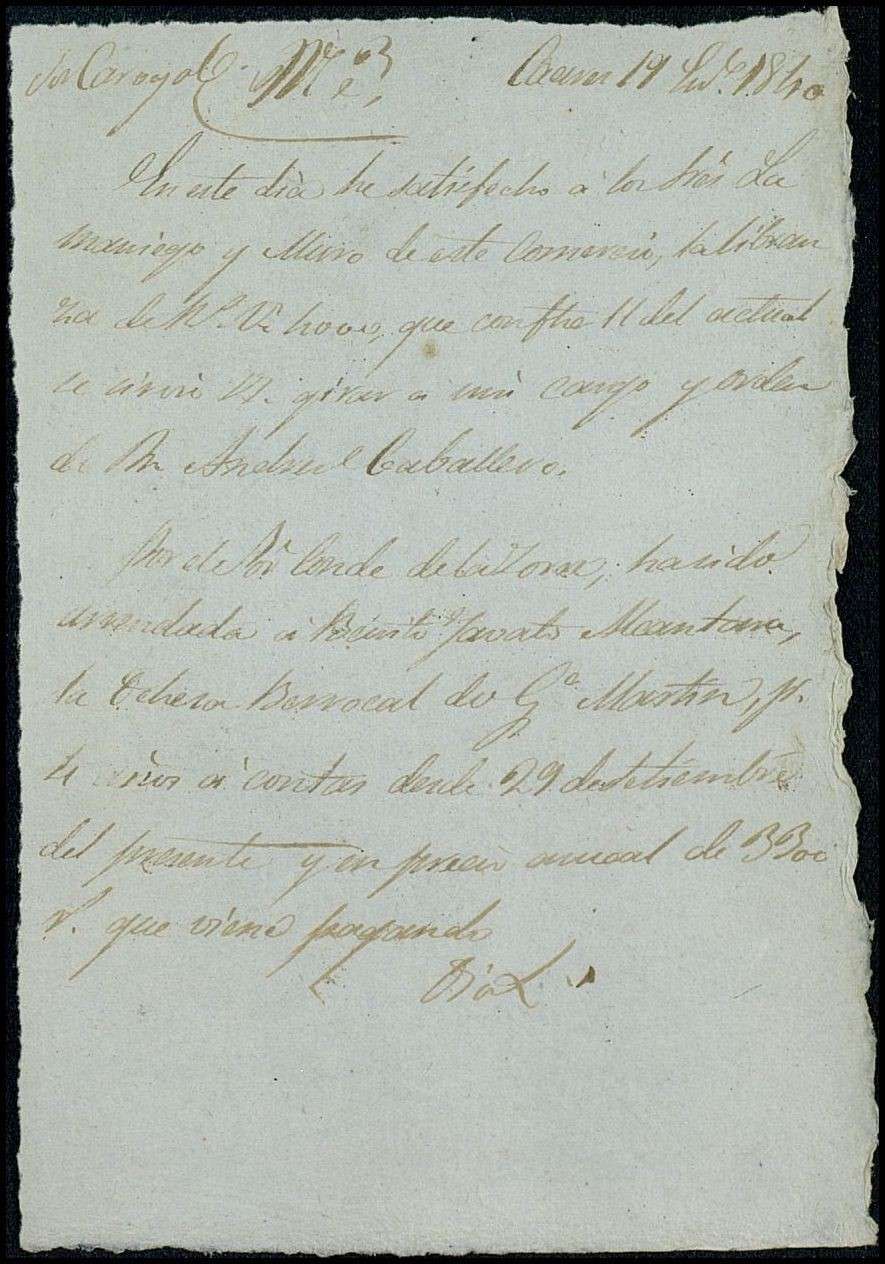 Caceres 19 1840
En este dia he satisfecho á los Sres La
maniego y Muro de este Comercio, la libran
za de Rs. Vn. que con fha 11 del actual
se sirvió V. girar a mi cargo y orden
de Dn. Andres Caballero.
Por el Sor Conde de la Torre, ha sido
arrendada á Benito Javato Mantara,
la Dehesa Berrocal de Ga Martin, pr.
años á contar desde 29 de Setiembre
del presente y en precio anual de 3300
rs. que viene pagando